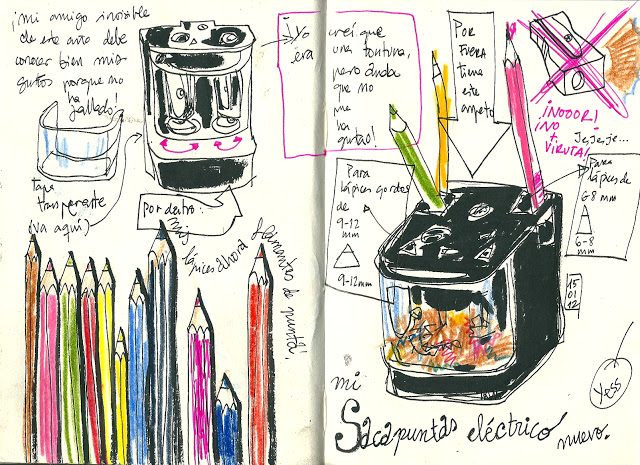 ¡Mi amigo invisible
de este año debe
conocer bien mis
gustos porque no
ha
fallado!
tapa
transparente
(va aquí)
Por dentro:
mis
lápices ahora
de punta!
¡Yo
era
creí que
una tontuna,
pero anda
que no
me
ha
gustao!
POR
FUERA
tiene
este
aspeto
¡NOOOR!
¡NO
+
VIRUTA!
Je, je, je...
Para
lápices gordos
de
9-12
mm
9-12mm
Para
lápices de
6-8 mm
6-8
mm
15
01
12
Yess
mi
Sacapuntas eléctrico
nuevo.